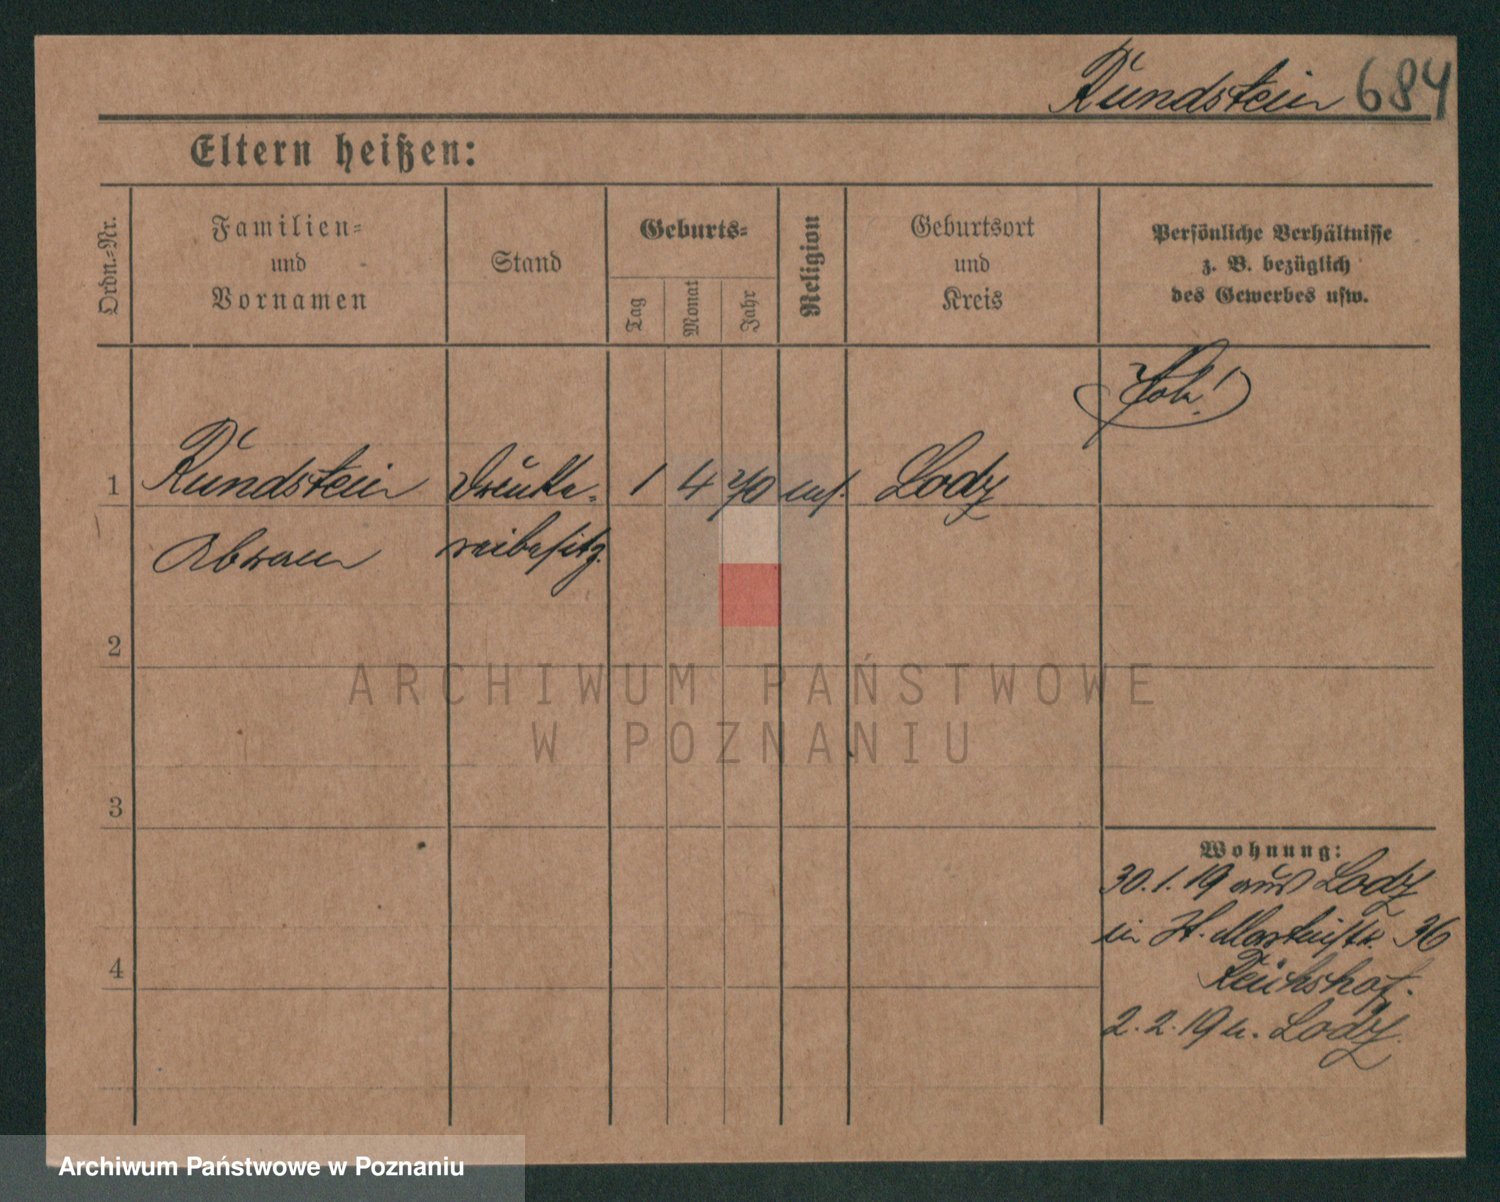 Rundstein 684
Eltern heißen:
Ordn.-Nr.
Familien-
und
Vornamen
Stand
Geburts-
Tag
Monat
Jahr
Religion
Geburtsort
und
Kreis
Persönliche Verhältnisse
z. B. bezüglich
des Gewerbes usw.
1 Rundstein Drucke- 1 4 70 Lodz
Abram reibesitz.
2
3
4
Wohnung:
30.1.19 aus Lodz
in St. Martinstr. 36
Reichshof.
2.2.19 n. Lodz.
ARCHIWUM PAŃSTWOWE
W POZNANIU
Archiwum Państwowe w Poznaniu